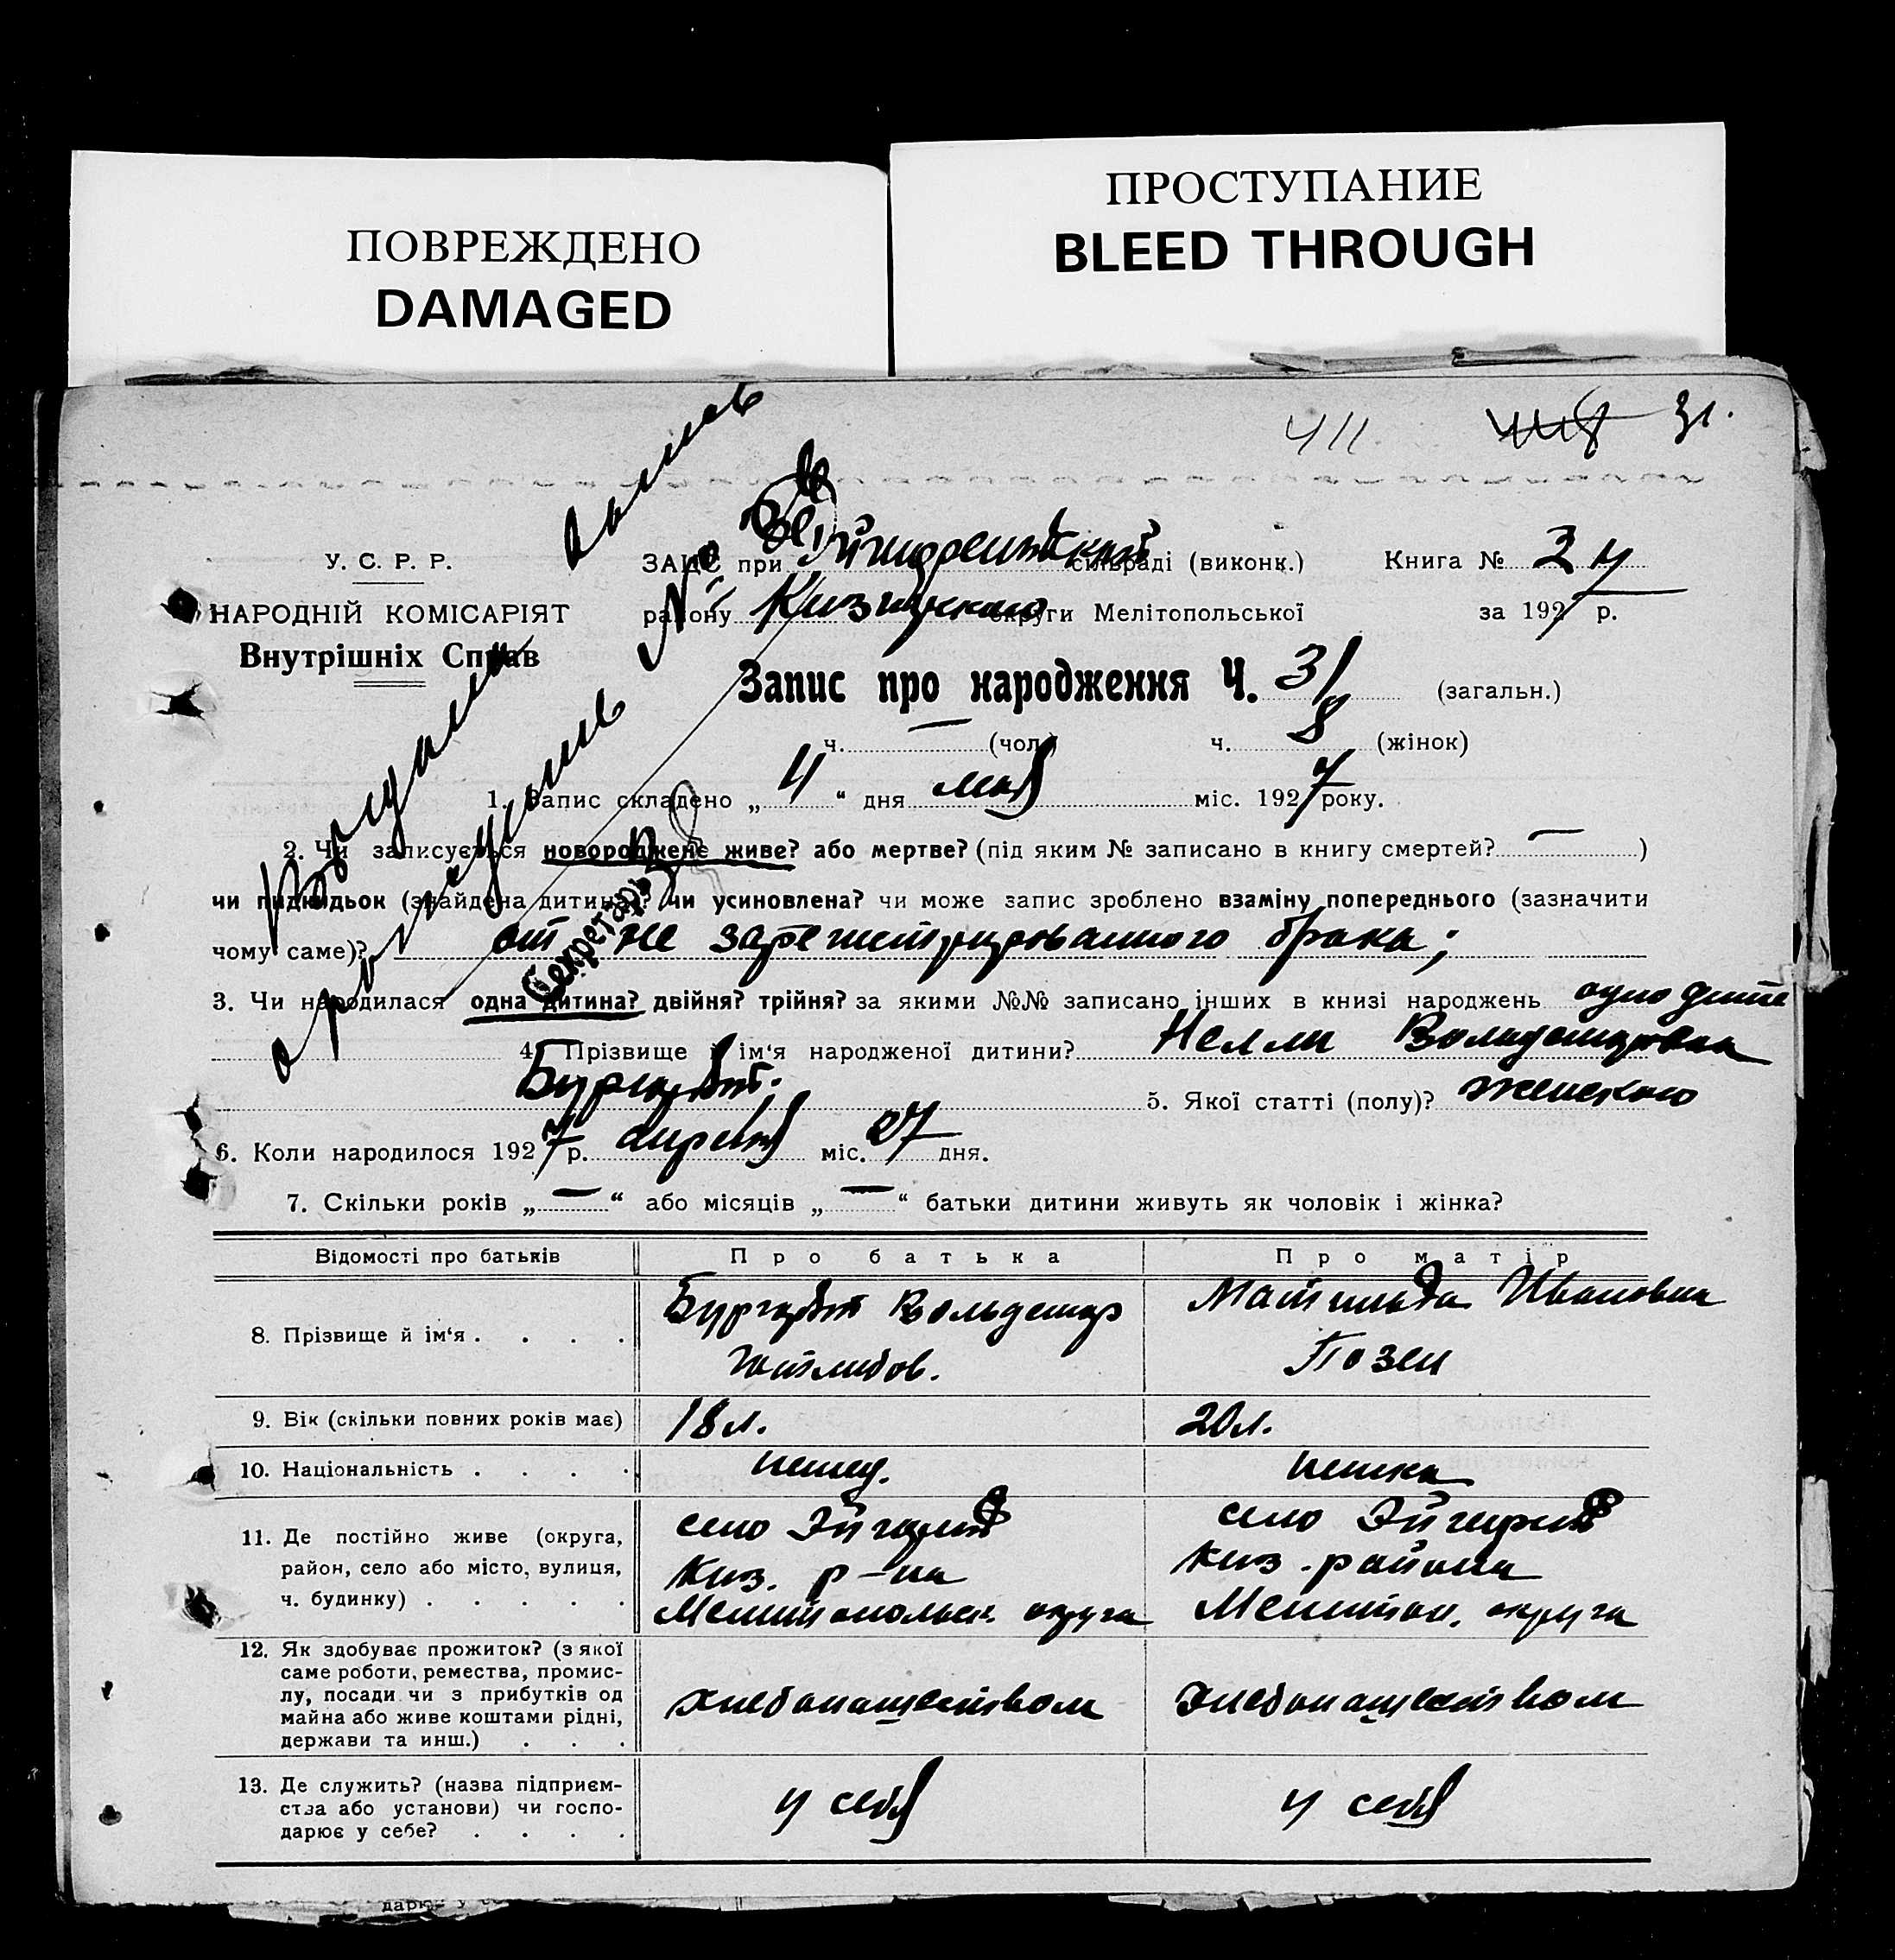 ПОВРЕЖДЕНО
DAMAGED
ПРОСТУПАНИЕ
BLEED THROUGH
411 31.
У. С. Р. Р.
НАРОДНІЙ КОМІСАРІЯТ
Внутрішніх Справ
ЗАЦС при сільраді (виконк.) Книга №
району округи Мелітопольської за 1927 р.
Запис про народження Ч. 31 (загальн.)
ч. — (чол.) ч. 8 (жінок)
1. Запис складено „ 4 “ дня мая міс. 1927 року.
2. Чи записується новороджене живе? або мертве? (під яким № записано в книгу смертей? — )
чи підкидьок (знайдена дитина)? чи усиновлена? чи може запис зроблено взаміну попереднього (зазначити
чому саме)? от не зарегистрированного брака;
Секретарь
3. Чи народилася одна дитина? двійня? трійня? за якими №№ записано інших в книзі народжень одно дитя
4. Прізвище й ім‘я народженої дитини? Нелли Вольдемаровна
Бургардт. 5. Якої статті (полу)? женского
6. Коли народилося 1927 р. апреля міс. 27 дня.
7. Скільки років „ — “ або місяців „ — “ батьки дитини живуть як чоловік і жінка?
Відомості про батьків Про батька Про матір
8. Прізвище й ім‘я . . . . Бургардт Вольдемар Матильда Ивановна
Готлибов. Позен
9. Вік (скільки повних років має) 18 л. 20 л.
10. Національність . . . . немец. немка
11. Де постійно живе (округа, село село
район, село або місто, вулиця, Киз. р-на Киз. района
ч. будинку) . . . . . Мелитопольск. округа Мелитоп. округа
12. Як здобуває прожиток? (з якої
саме роботи, ремества, промис-
лу, посади чи з прибутків од хлебопашеством хлебопашеством
майна або живе коштами рідні,
держави та инш.) . . .
13. Де служить? (назва підприєм-
ства або установи) чи госпо- у себя у себя
дарює у себе? . . . .